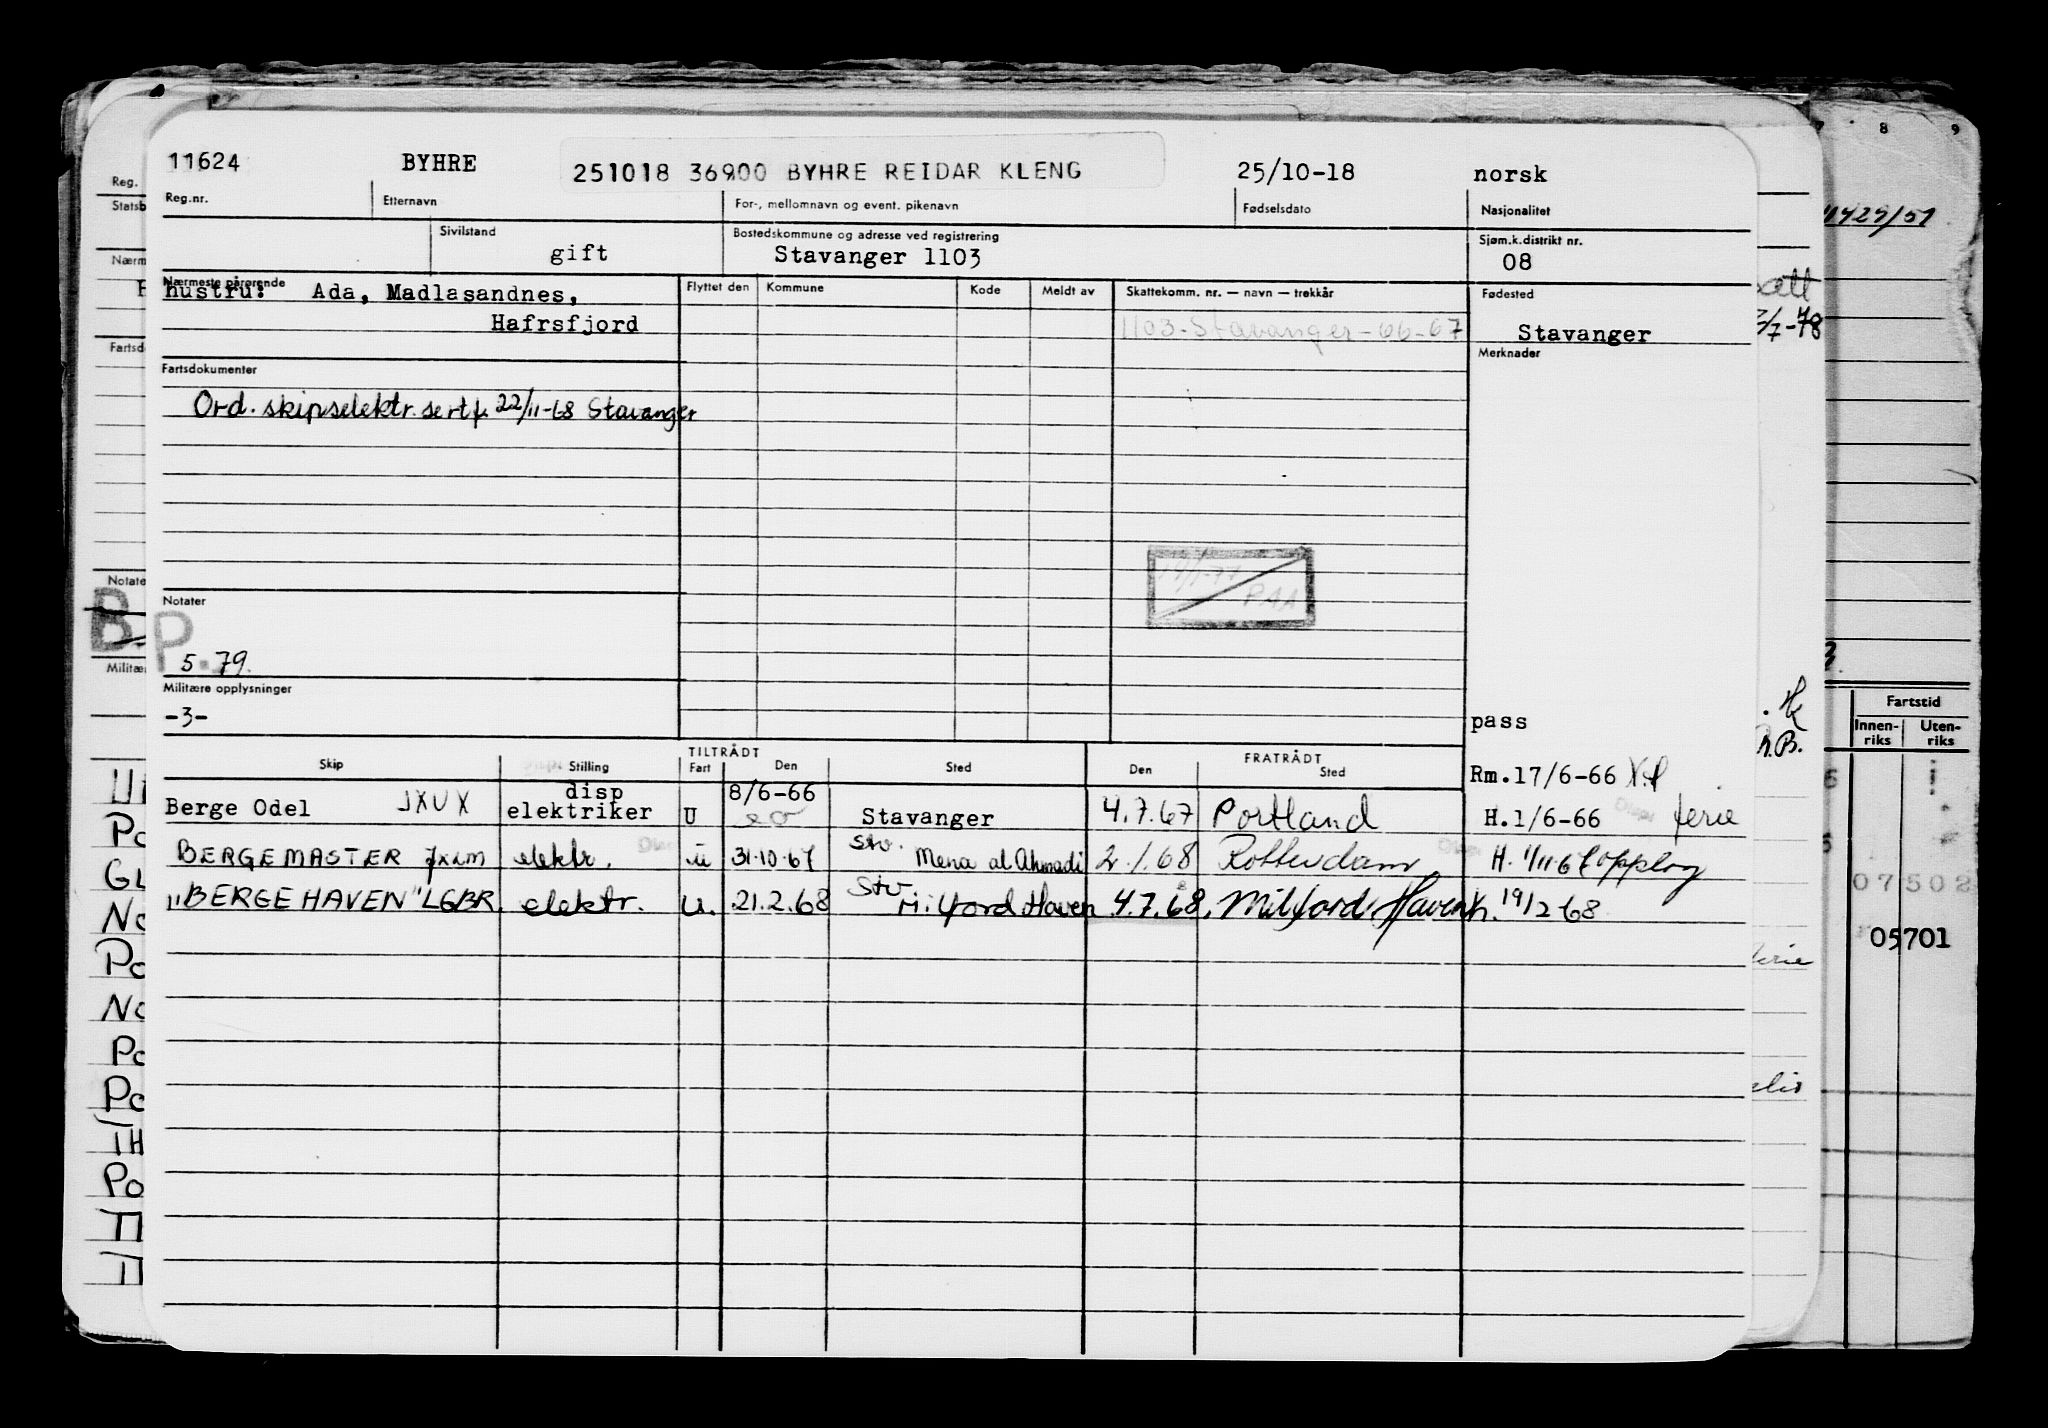 11624 BYHRE 251018 36900 BYHRE REIDAR KLENG 25/10-18 norsk
Reg.nr. Etternavn For-, mellomnavn og event. pikenavn Fødselsdato Nasjonalitet
Sivilstand Bostedskommune og adresse ved registrering Sjøm.k.distrikt nr.
gift Stavanger 1103 08
Nærmeste pårørende Flyttet den Kommune Kode Meldt av Skattekomm. nr. — navn — trekkår Fødested
hustru: Ada, Madlasandnes,
Hafrsfjord 1103-Stavanger-66-67 Stavanger
Fartsdokumenter Merknader
Ord. skipselektr. sertf. 22/11-68 Stavanger
Notater
B.P.
PAA
5.79.
Militære opplysninger
-3- pass
TILTRÅDT FRATRÅDT
Skip Stilling Fart Den Sted Den Sted
Rm.17/6-66
Berge Odel JXUX disp elektriker U 8/6-66 Stavanger 4.7.67 Portland H.1/6-66 ferie
BERGEMASTER elektr. u 31.10.67 Stv. Mena al Ahmadi 2.1.68 Rotterdam H. 1/11-67 opplag
"BERGE HAVEN" LGBR. elektr. u. 21.2.68 Stv. Milford Haven 4.7.68. Milford Haven h. 19/2-68
8 9
Reg.
Statsb
Nærm
Fartsd
Notate
Militæ
Fartstid
Innenriks Utenriks
07502
05701
ferie